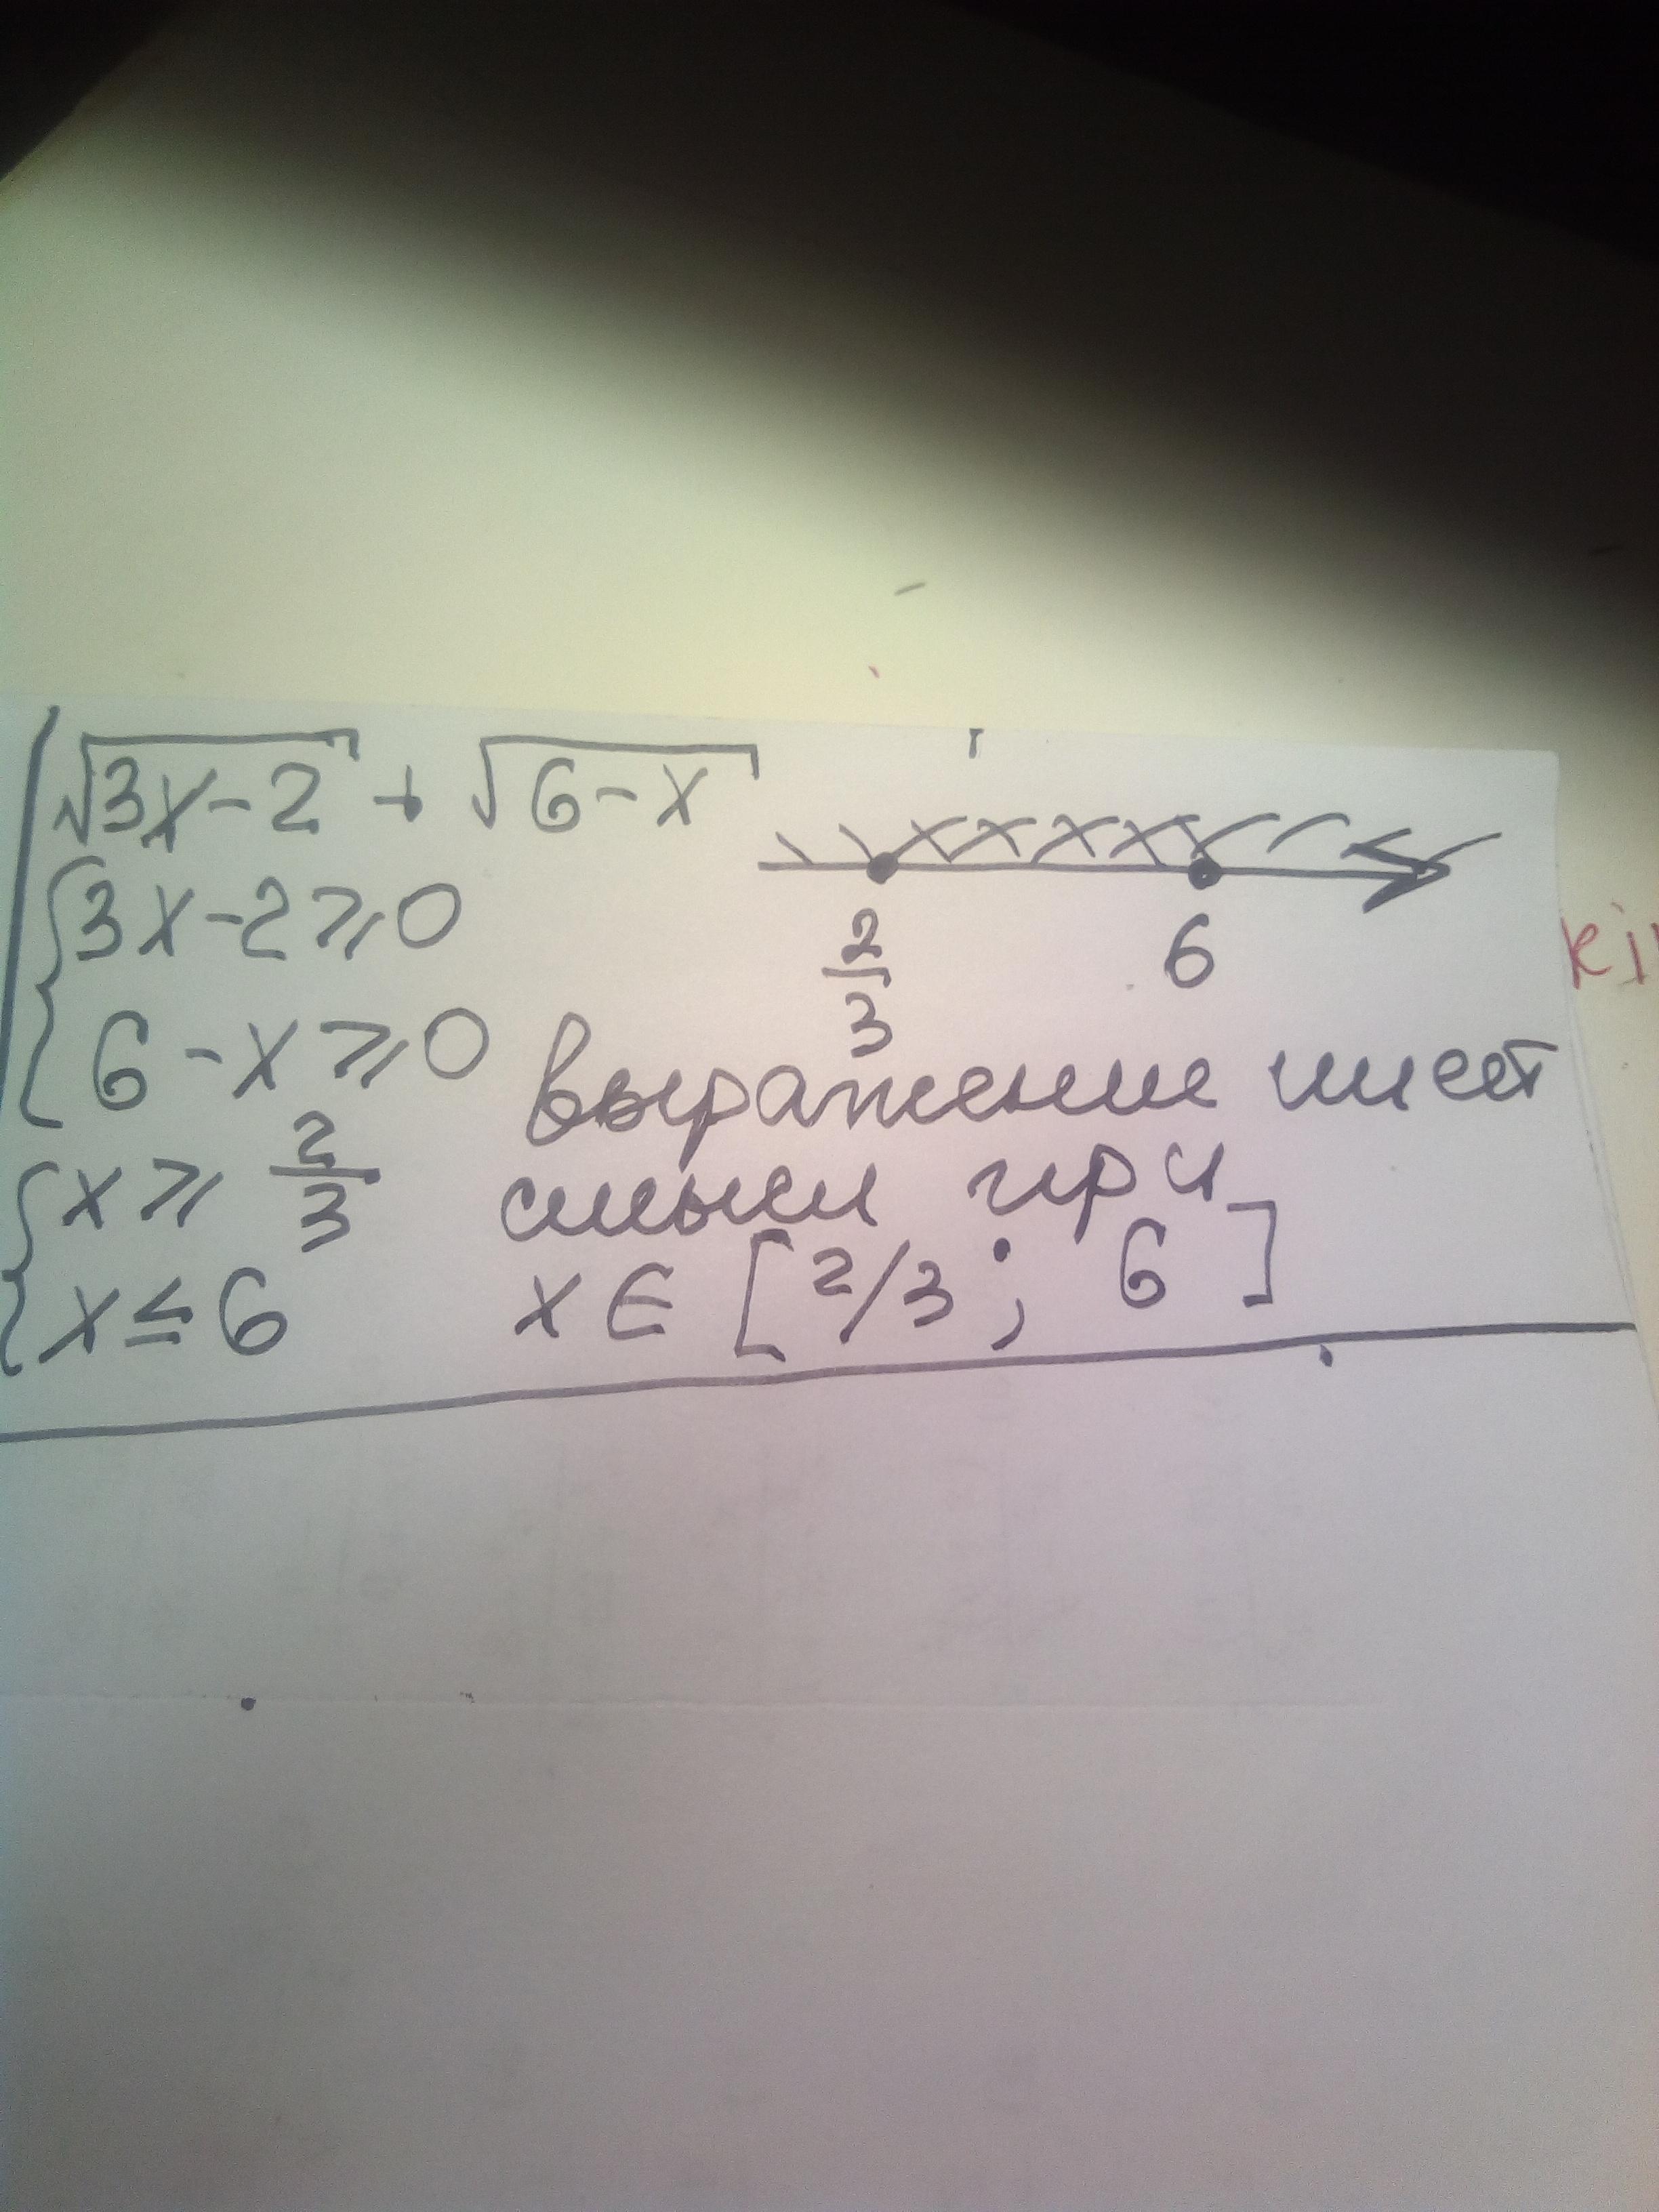 √3x-2 + √6-x
{3x-2⩾0
{6-x⩾0
{x⩾ 2/3
{x≤6
2/3 6
выражение имеет
смысл при
x∈[2/3; 6]
ki